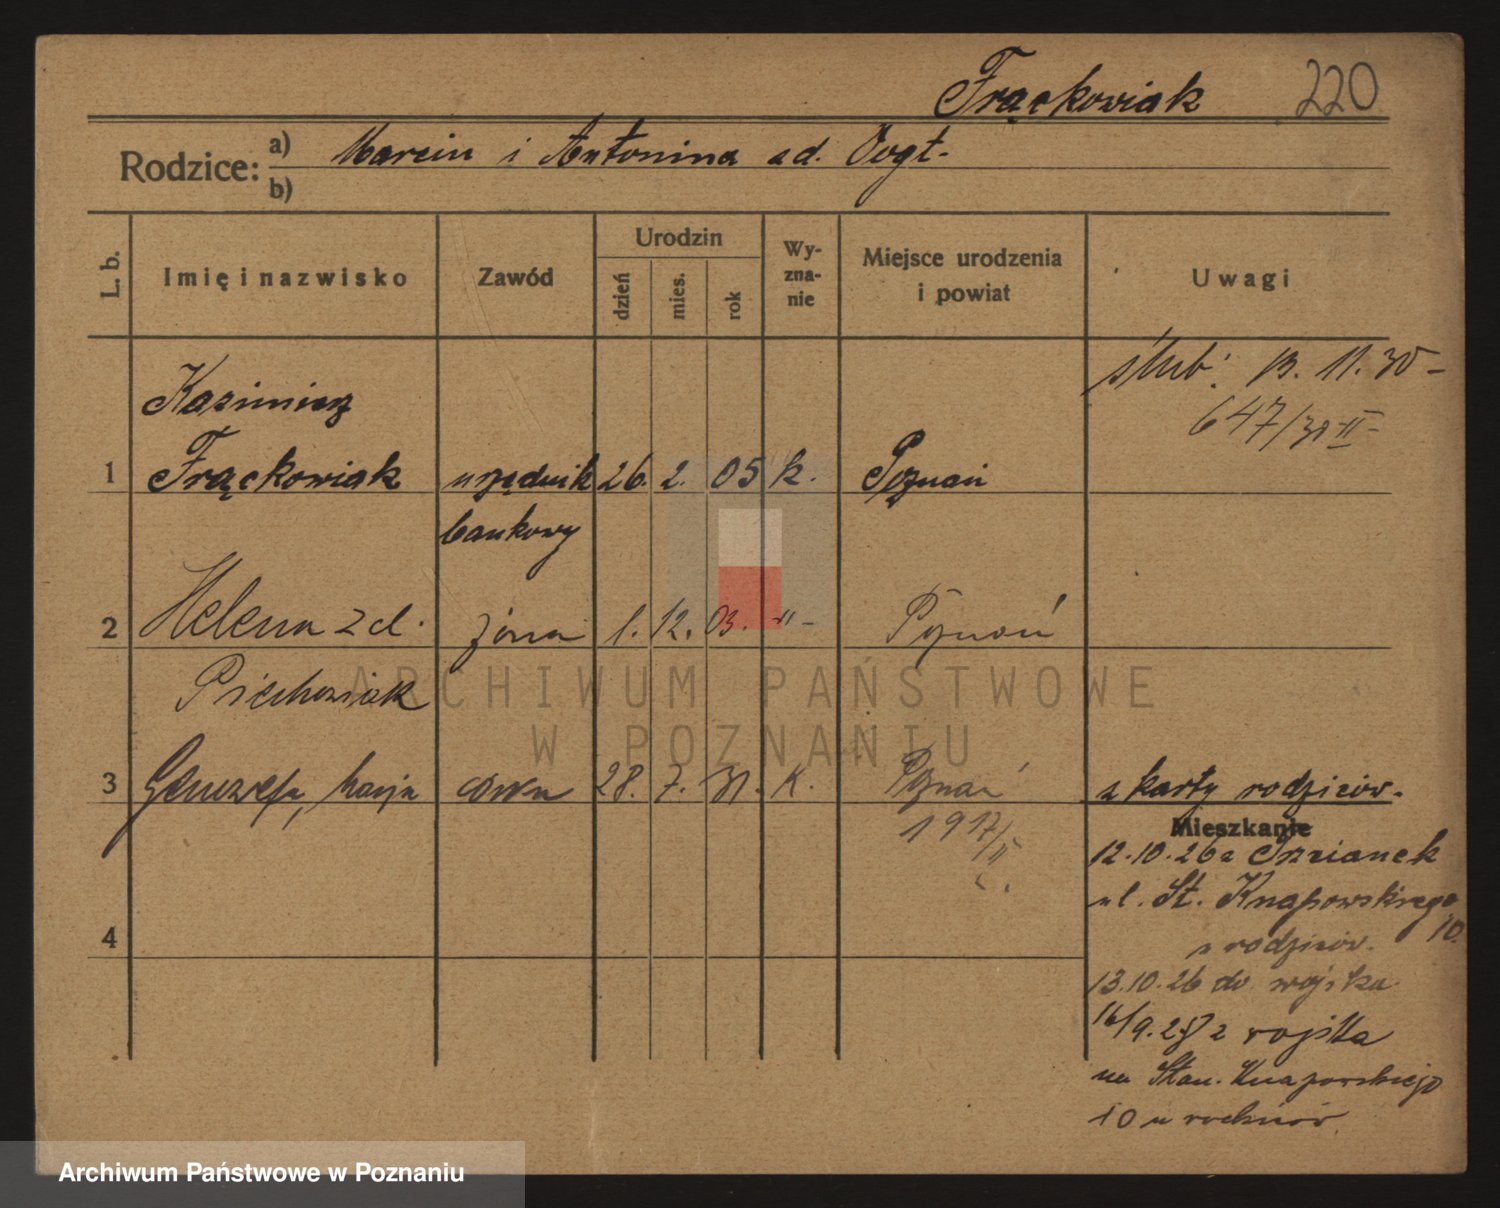 Frąckowiak 220
Rodzice: a) Marcin i Antonina zd. Vogt.
b)
L. b. Imię i nazwisko Zawód Urodzin dzień mies. rok Wy-zna-nie Miejsce urodzenia i powiat Uwagi
ślub: 13. 11. 30 -
647/30 II -
Kazimierz
1 Frąckowiak urzędnik 26. 2. 05 k. Poznań
bankowy
2 Helena zd. żona 1. 12. 03. -"- Poznań
Piechowiak
3 Genowefa, Marja córka 28. 7. 31. k. Poznań z karty rodziców.
1917/II
Mieszkanie
12.10.26 z
ul. St. Knapowskiego
10.
u rodziców.
13.10.26 do wojska.
4
16/9. 27 z wojska
na Stan. Knapowskiego
10 u rodziców.
ARCHIWUM PAŃSTWOWE
W POZNANIU
Archiwum Państwowe w Poznaniu